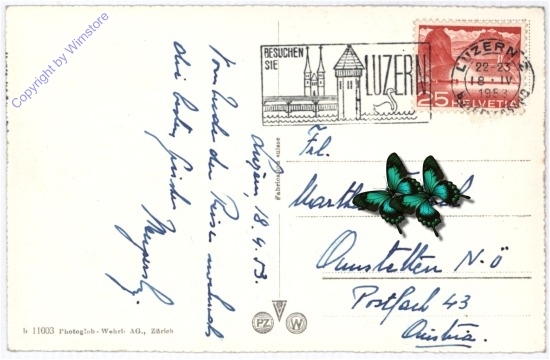 Copyright by Wimstore
BESUCHEN
SIE
LUZERN
LUZERN
22-23
18.IV.
1953
25 HELVETIA
Luzern, 18.4.53.
Vom Ende der Reise nochmals
die besten Grüße
Frl.
Martha
Amstetten N-Ö
Postfach 43
Austria.
Fabrication suisse
b 11603 Photoglob-Wehrli AG., Zürich
PZ W